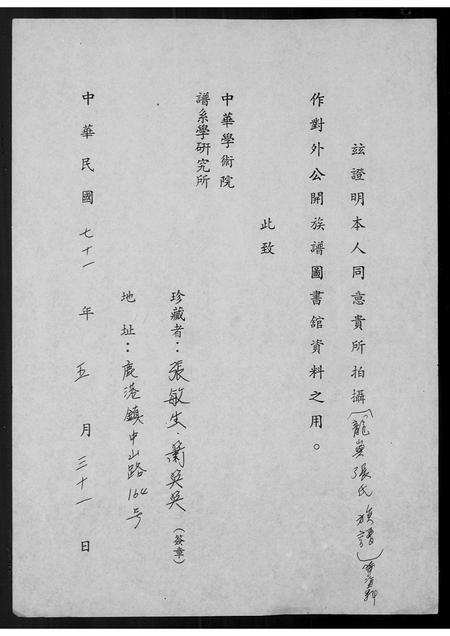 茲證明本人同意貴所拍攝(龍 張氏族譜)
作對外公開族譜圖書館資料之用。
此致
中華學術院
譜系學研究所
珍藏者：張敏生．蕭吳吳(簽章)
地址：鹿港鎮中山路164号
中華民國七十一年五月三十一日